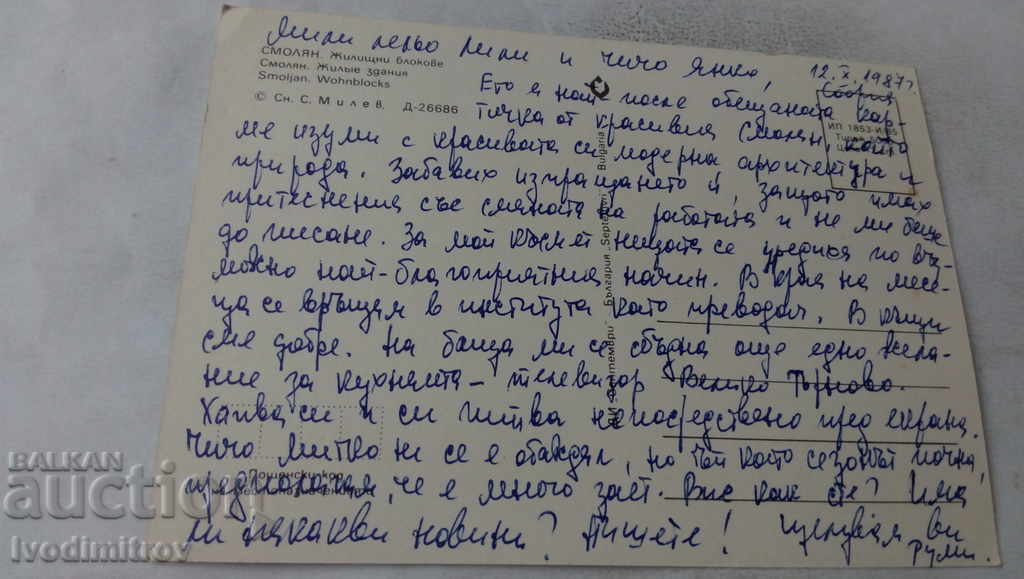 Мили лельо Лили и чичо Янко,
12.X.1987г.
София
СМОЛЯН. Жилищни блокове
Смолян. Жилые здания
Smoljan. Wohnblocks
© Сн. С. Милев. Д-26686
Ето я най-после обещаната кар-
тичка от красивия Смолян, който
ме изуми с красивата си модерна архитектура и
природа. Забавих изпращането ѝ защото имах
притеснения със смяната на работата и не ми беше
до писане. За мой късмет нещата се уредиха по въз-
можно най-благоприятния начин. В края на месе-
ца се връщам в института като преводач. В къщи
сме добре. На баща ми се сбъдна още едно жела-
ние за кухнята – телевизор Велико Търново.
Хапва си и си пийва непосредствено пред екрана.
Чичо Митко не се е обаждал, но тъй като сезонът почна,
предполагам, че е много зает. Вие как сте? Има
ли някакви новини? Пишете! Целувам ви
Руми.
ИП 1853-И/85
България
Bulgaria
"Септември"
"Septemvri"
Пощенски код
BALKAN
auction
Ivodimitrov